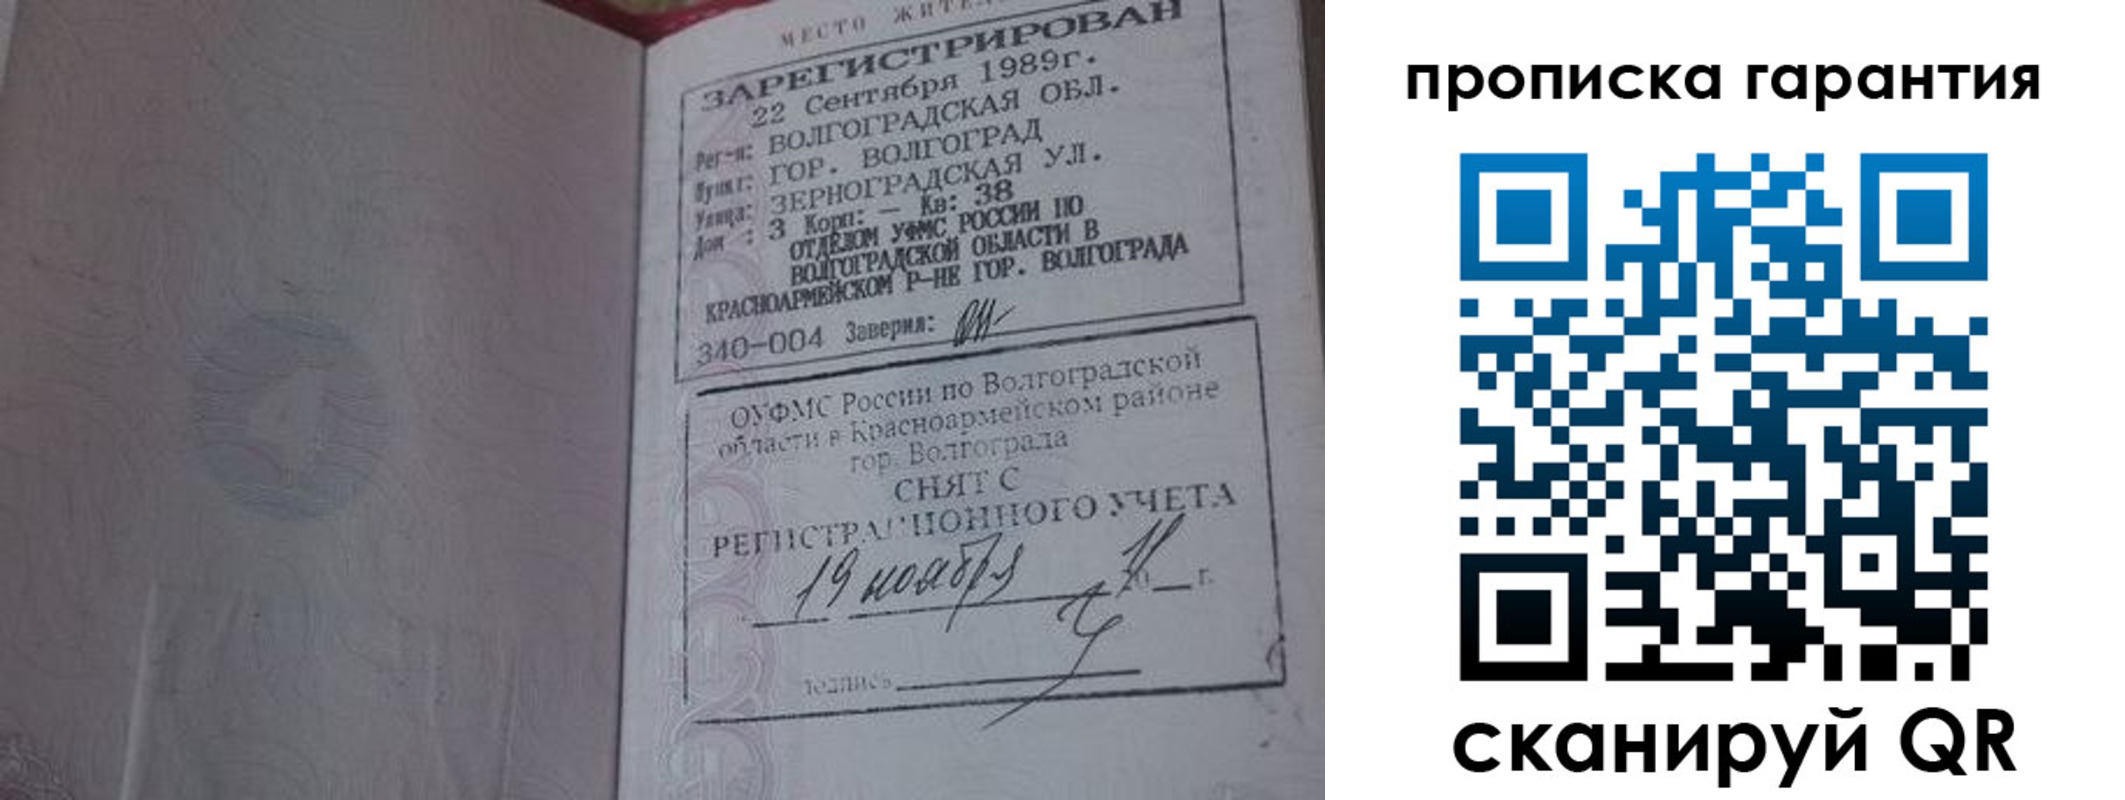 МЕСТО ЖИТЕЛ
ЗАРЕГИСТРИРОВАН
22 Сентября 1989г.
Рег-н: ВОЛГОГРАДСКАЯ ОБЛ.
Пункт: ГОР. ВОЛГОГРАД
Улица: ЗЕРНОГРАДСКАЯ УЛ.
Дом : 3 Корп: — Кв: 38
ОТДЕЛОМ УФМС РОССИИ ПО
ВОЛГОГРАДСКОЙ ОБЛАСТИ В
КРАСНОАРМЕЙСКОМ Р-НЕ ГОР. ВОЛГОГРАДА
340-004 Заверил:
ОУФМС России по Волгоградской
области в Красноармейском районе
гор. Волгограда
СНЯТ С
РЕГИСТРАЦИОННОГО УЧЕТА
19 ноября 2011 г.
подпись
прописка гарантия
сканируй QR